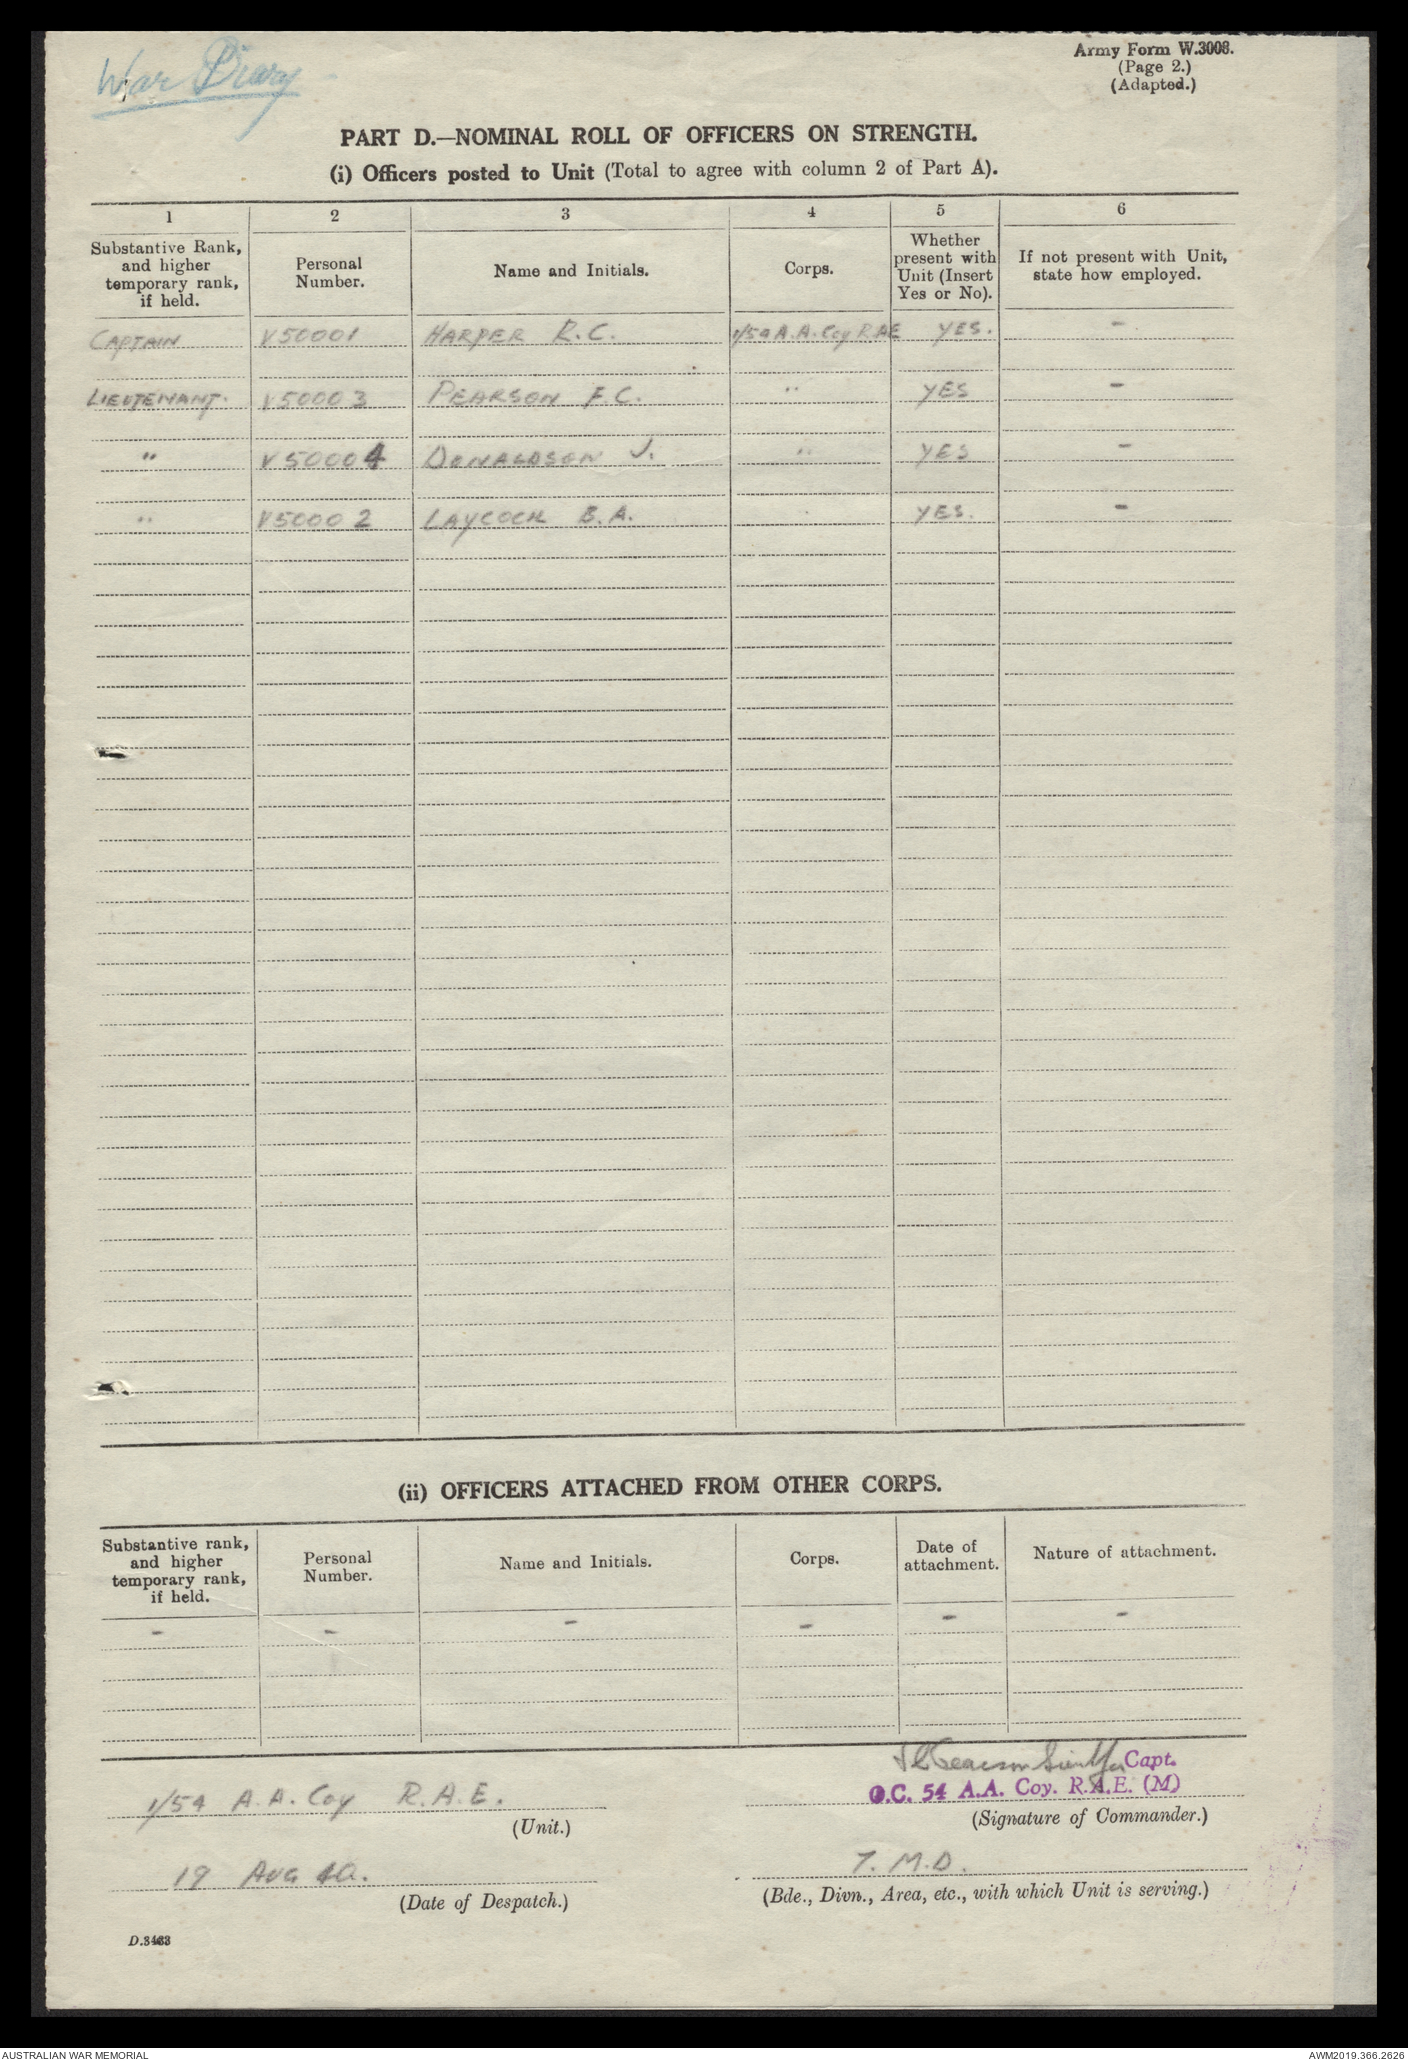 War Diary
Army Form W.3008.
(Page 2.)
(Adapted.)
PART D.—NOMINAL ROLL OF OFFICERS ON STRENGTH.
(i) Officers posted to Unit (Total to agree with column 2 of Part A).
1 2 3 4 5 6
Substantive Rank, and higher temporary rank, if held. Personal Number. Name and Initials. Corps. Whether present with Unit (Insert Yes or No). If not present with Unit, state how employed.
CAPTAIN V50001 HARPER R.C. 1/54 A.A. Coy RAE YES. -
LIEUTENANT. V50003 PEARSON F.C. " YES -
" V50004 DONALDSON J. " YES -
" V50002 LAYCOCK B.A. YES. -
(ii) OFFICERS ATTACHED FROM OTHER CORPS.
Substantive rank, and higher temporary rank, if held. Personal Number. Name and Initials. Corps. Date of attachment. Nature of attachment.
- - - - - -
Capt.
1/54 A.A. Coy R.A.E. O.C. 54 A.A. Coy. R.A.E. (M)
(Unit.) (Signature of Commander.)
19 AUG 40. 7. M.D.
(Date of Despatch.) (Bde., Divn., Area, etc., with which Unit is serving.)
D.3463
AUSTRALIAN WAR MEMORIAL AWM2019.366.2626